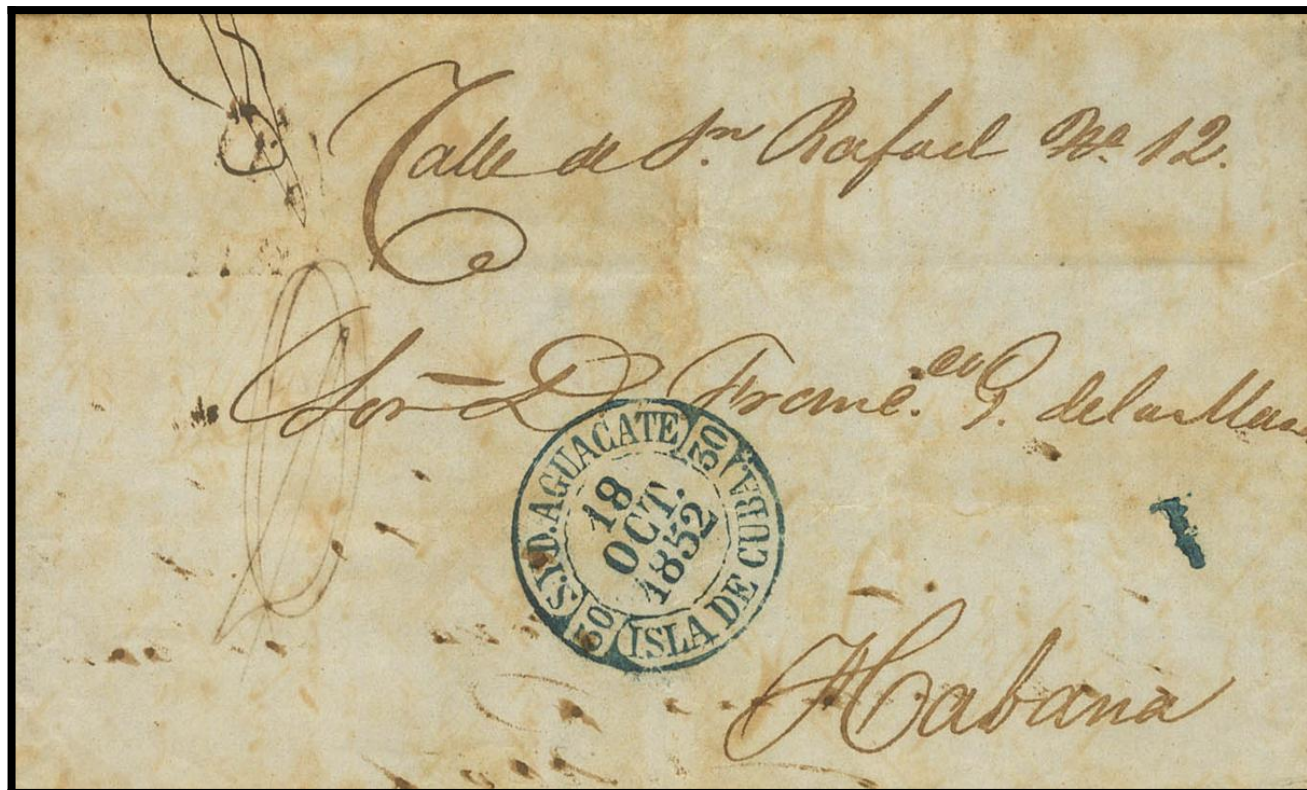 Calle de Sn. Rafael No. 12.
Sor. D. Franc.co G. de la
S.Y.D. AGUACATE 30 ISLA DE CUBA. 30
18
OCT.
1852
1
Habana